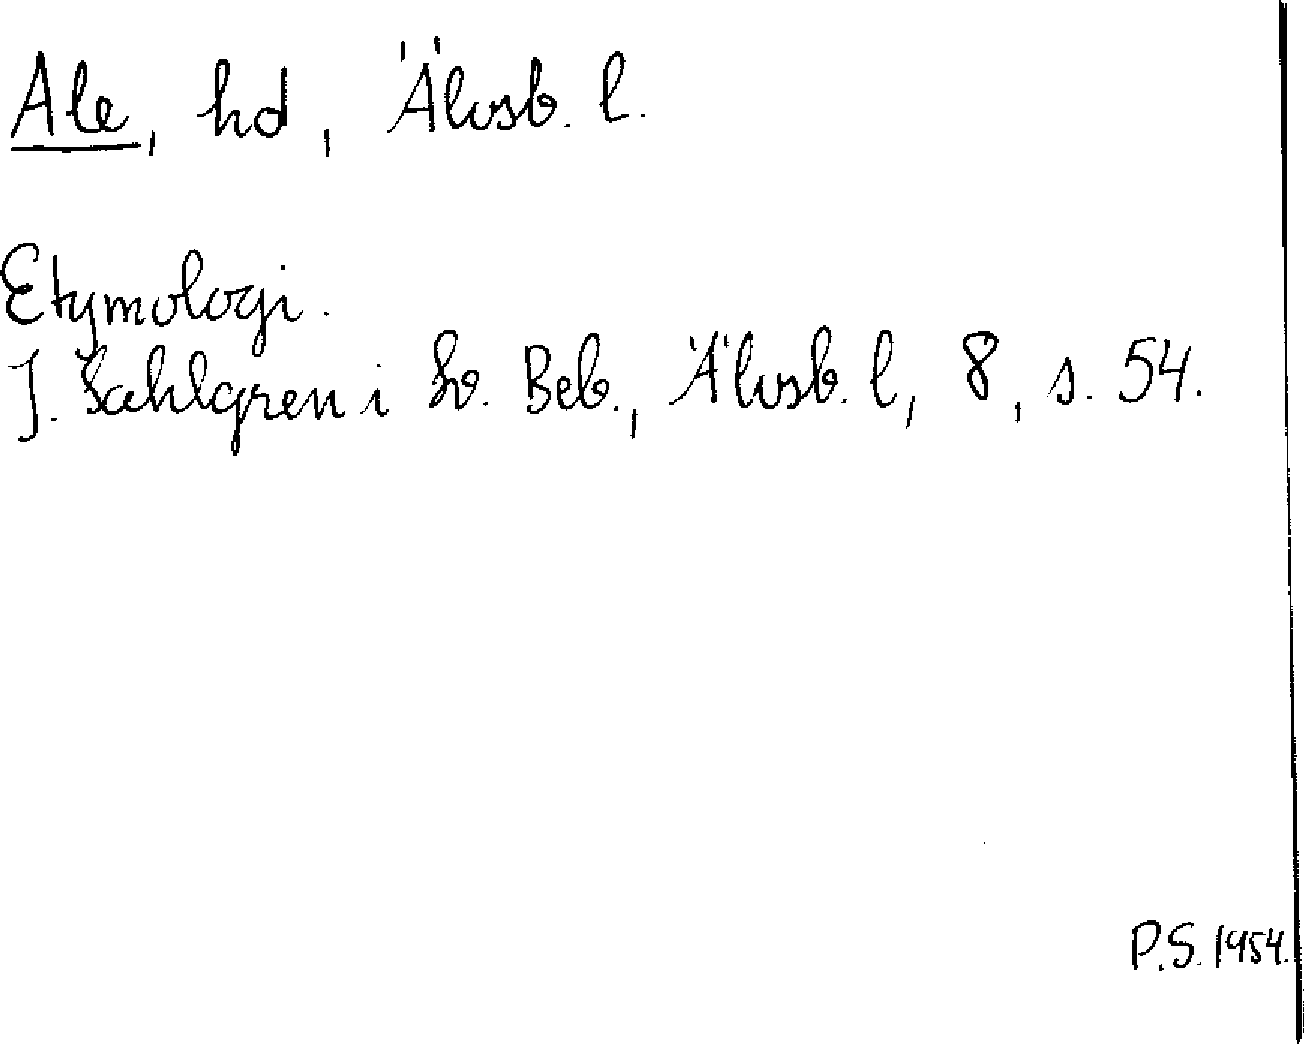 Ale, hd, Älvsb. l.
Etymologi.
J. Sahlgren i Sv. Beb., Älvsb. l, 8, s. 54.
P.S. 1954.